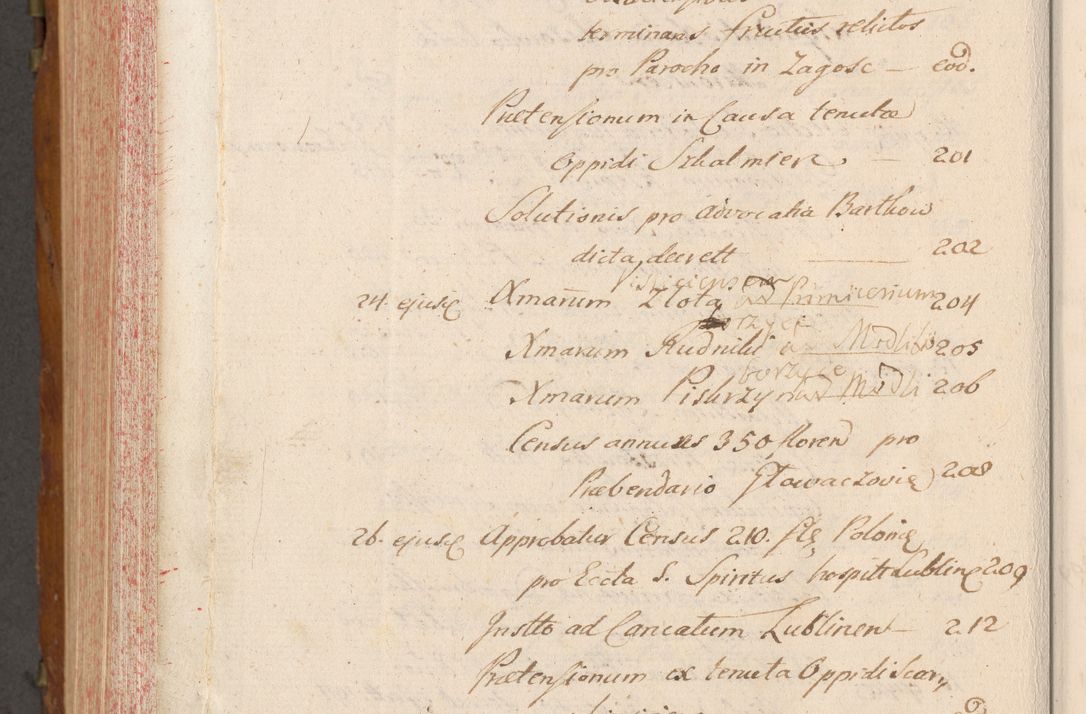 terminans fructus relictos
pro Parocho in Zagosc — eod.
Prætensionum in Causa tenutæ
Oppidi Szkalmierz — 201
Solutionis pro Advocatia Bartkow
dicta decrett — 202
24. ejusq Xmarum Zlota ad Primicerium 204
Xmarum Rudniki Modli 205
borzyce
Xmarum Piskrzyn Modli 206
Census annuus 350 floren pro
Præbendario Głowaczovię 208
26. ejusq Approbatur Census 210. flę Polonię
pro Eccta S. Spiritus hospitt Lublinę 209
Instto ad Cancatum Lublinen — 212
Prætensionum ex tenuta Oppidi Scary